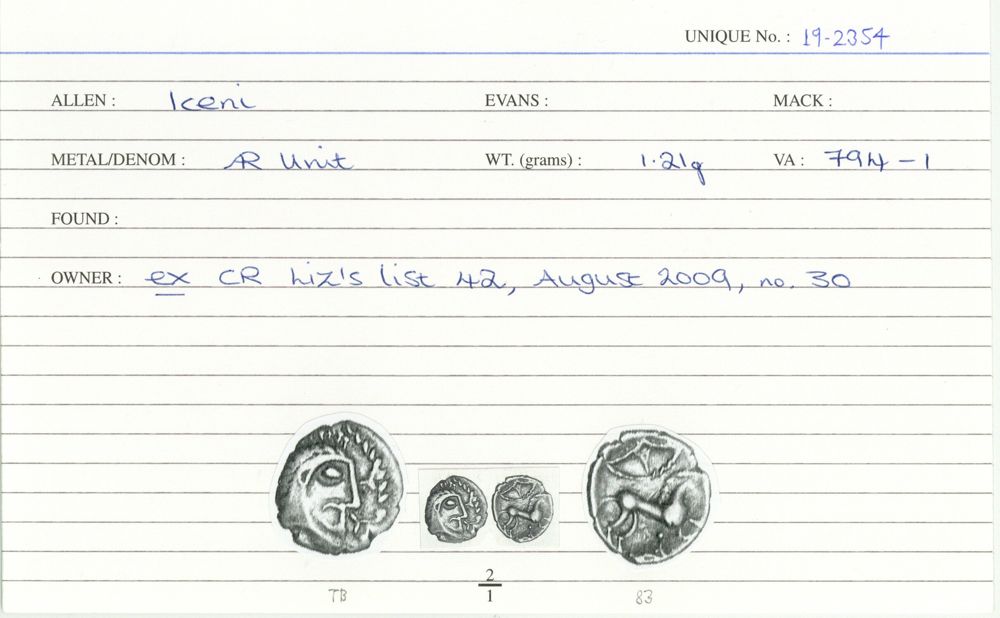 UNIQUE No. : 19-2354
ALLEN : Iceni EVANS : MACK :
METAL/DENOM : AR Unit WT. (grams) : 1.21g VA : 794-1
FOUND :
OWNER : ex CR Liz's list 42, August 2009, no. 30
2
1
TB 83